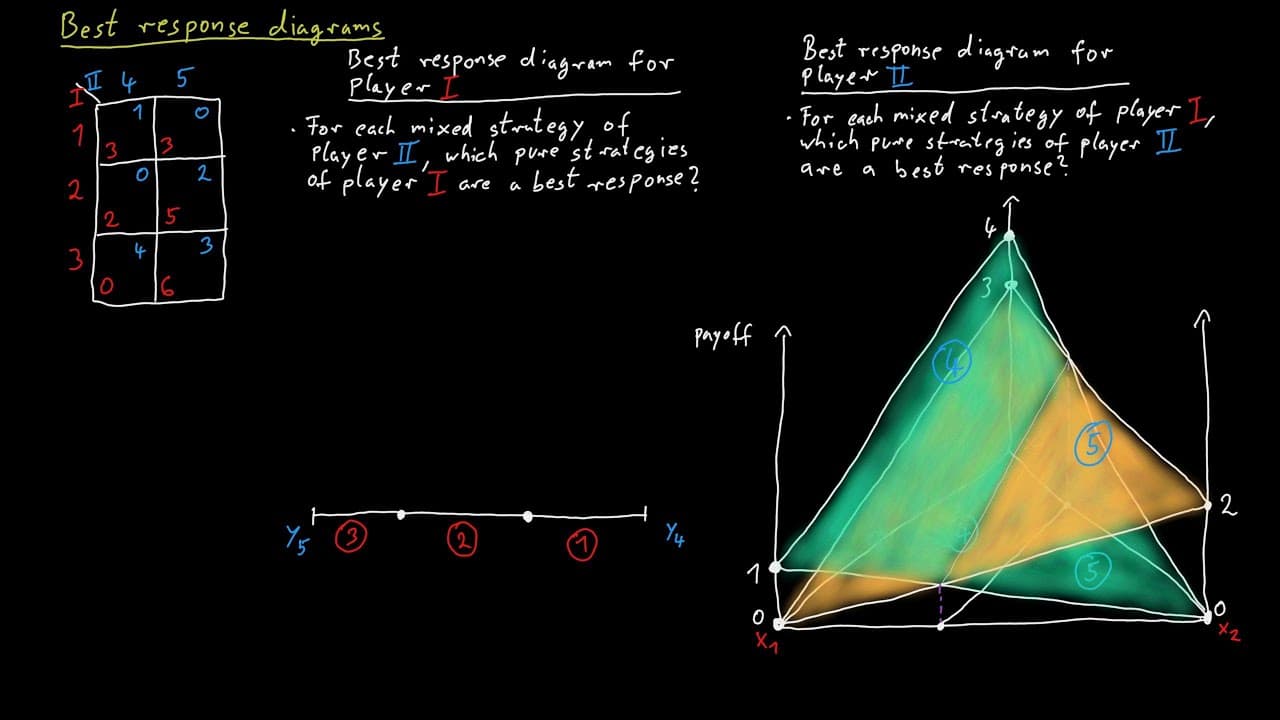 Best response diagrams
II 4 5
I
1 0
1 3 3
0 2
2 2 5
4 3
3 0 6
Best response diagram for
player I
· For each mixed strategy of
player II, which pure strategies
of player I are a best response?
y5 3 2 1 y4
Best response diagram for
player II
· For each mixed strategy of player I,
which pure strategies of player II
are a best response?
4
3
payoff
4
5
2
4
1
5
0 0
x1 x2